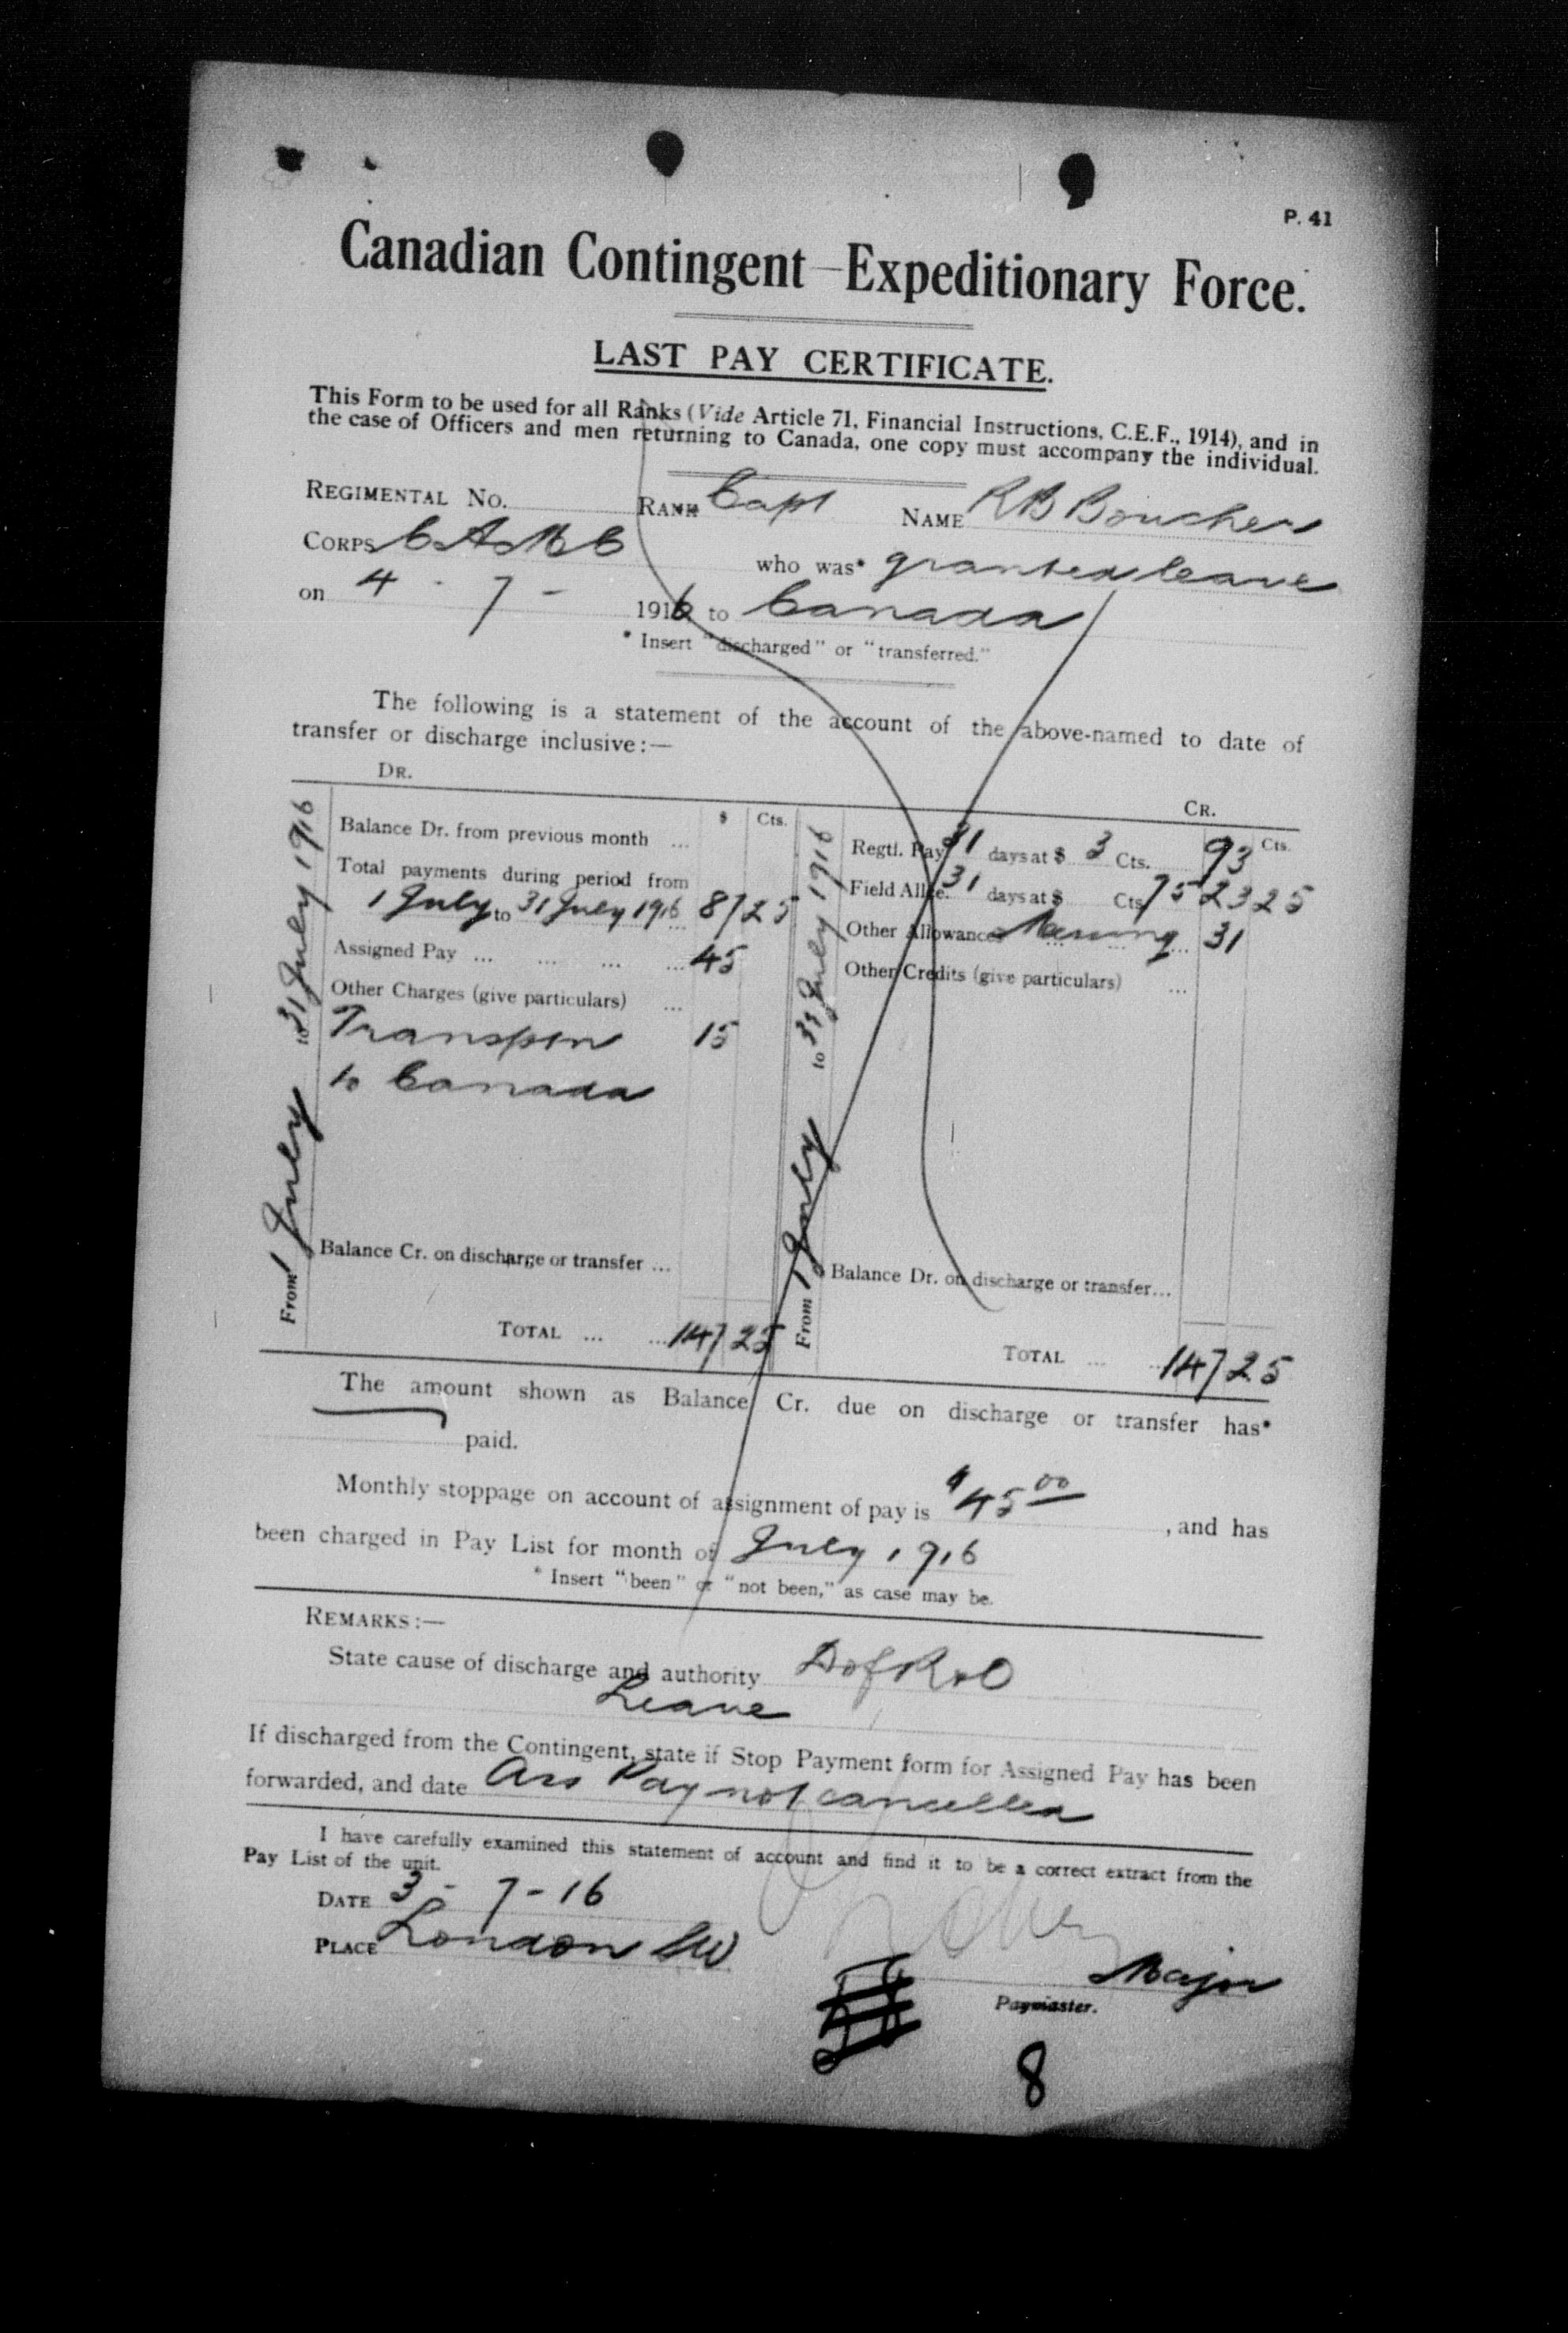 P. 41
Canadian Contingent Expeditionary Force.
LAST PAY CERTIFICATE.
This Form to be used for all Ranks (Vide Article 71, Financial Instructions, C.E.F., 1914), and in
the case of Officers and men returning to Canada, one copy must accompany the individual.
REGIMENTAL No. RANK Capt NAME R B Boucher
CORPS C A M C who was* granted leave
on 4 - 7 - 1916 to Canada
* Insert "discharged" or "transferred."
The following is a statement of the account of the above-named to date of
transfer or discharge inclusive:—
DR. CR.
From 1 July to 31 July 1916
$ Cts.
Balance Dr. from previous month ...
Total payments during period from
1 July to 31 July 1916 ... 87 25
Assigned Pay ... ... ... ... 45
Other Charges (give particulars) ...
Transptn 15
to Canada
Balance Cr. on discharge or transfer ...
TOTAL ... ... 147 25
From 1 July to 31 July 1916
Cts.
Regtl. Pay 31 days at $ 3 Cts. 93
Field Allce. 31 days at $ Cts 75 23 25
Other Allowances Messing ... 31
Other Credits (give particulars) ...
Balance Dr. on discharge or transfer...
TOTAL ... ... 147 25
The amount shown as Balance Cr. due on discharge or transfer has*
paid.
Monthly stoppage on account of assignment of pay is $45 00, and has
been charged in Pay List for month of July 1916
* Insert "been" or "not been," as case may be.
REMARKS:—
State cause of discharge and authority D of R & O
Leave
If discharged from the Contingent, state if Stop Payment form for Assigned Pay has been
forwarded, and date Ass Pay not cancelled
I have carefully examined this statement of account and find it to be a correct extract from the
Pay List of the unit.
DATE 3 - 7 - 16
PLACE London SW
Major
Paymaster.
8